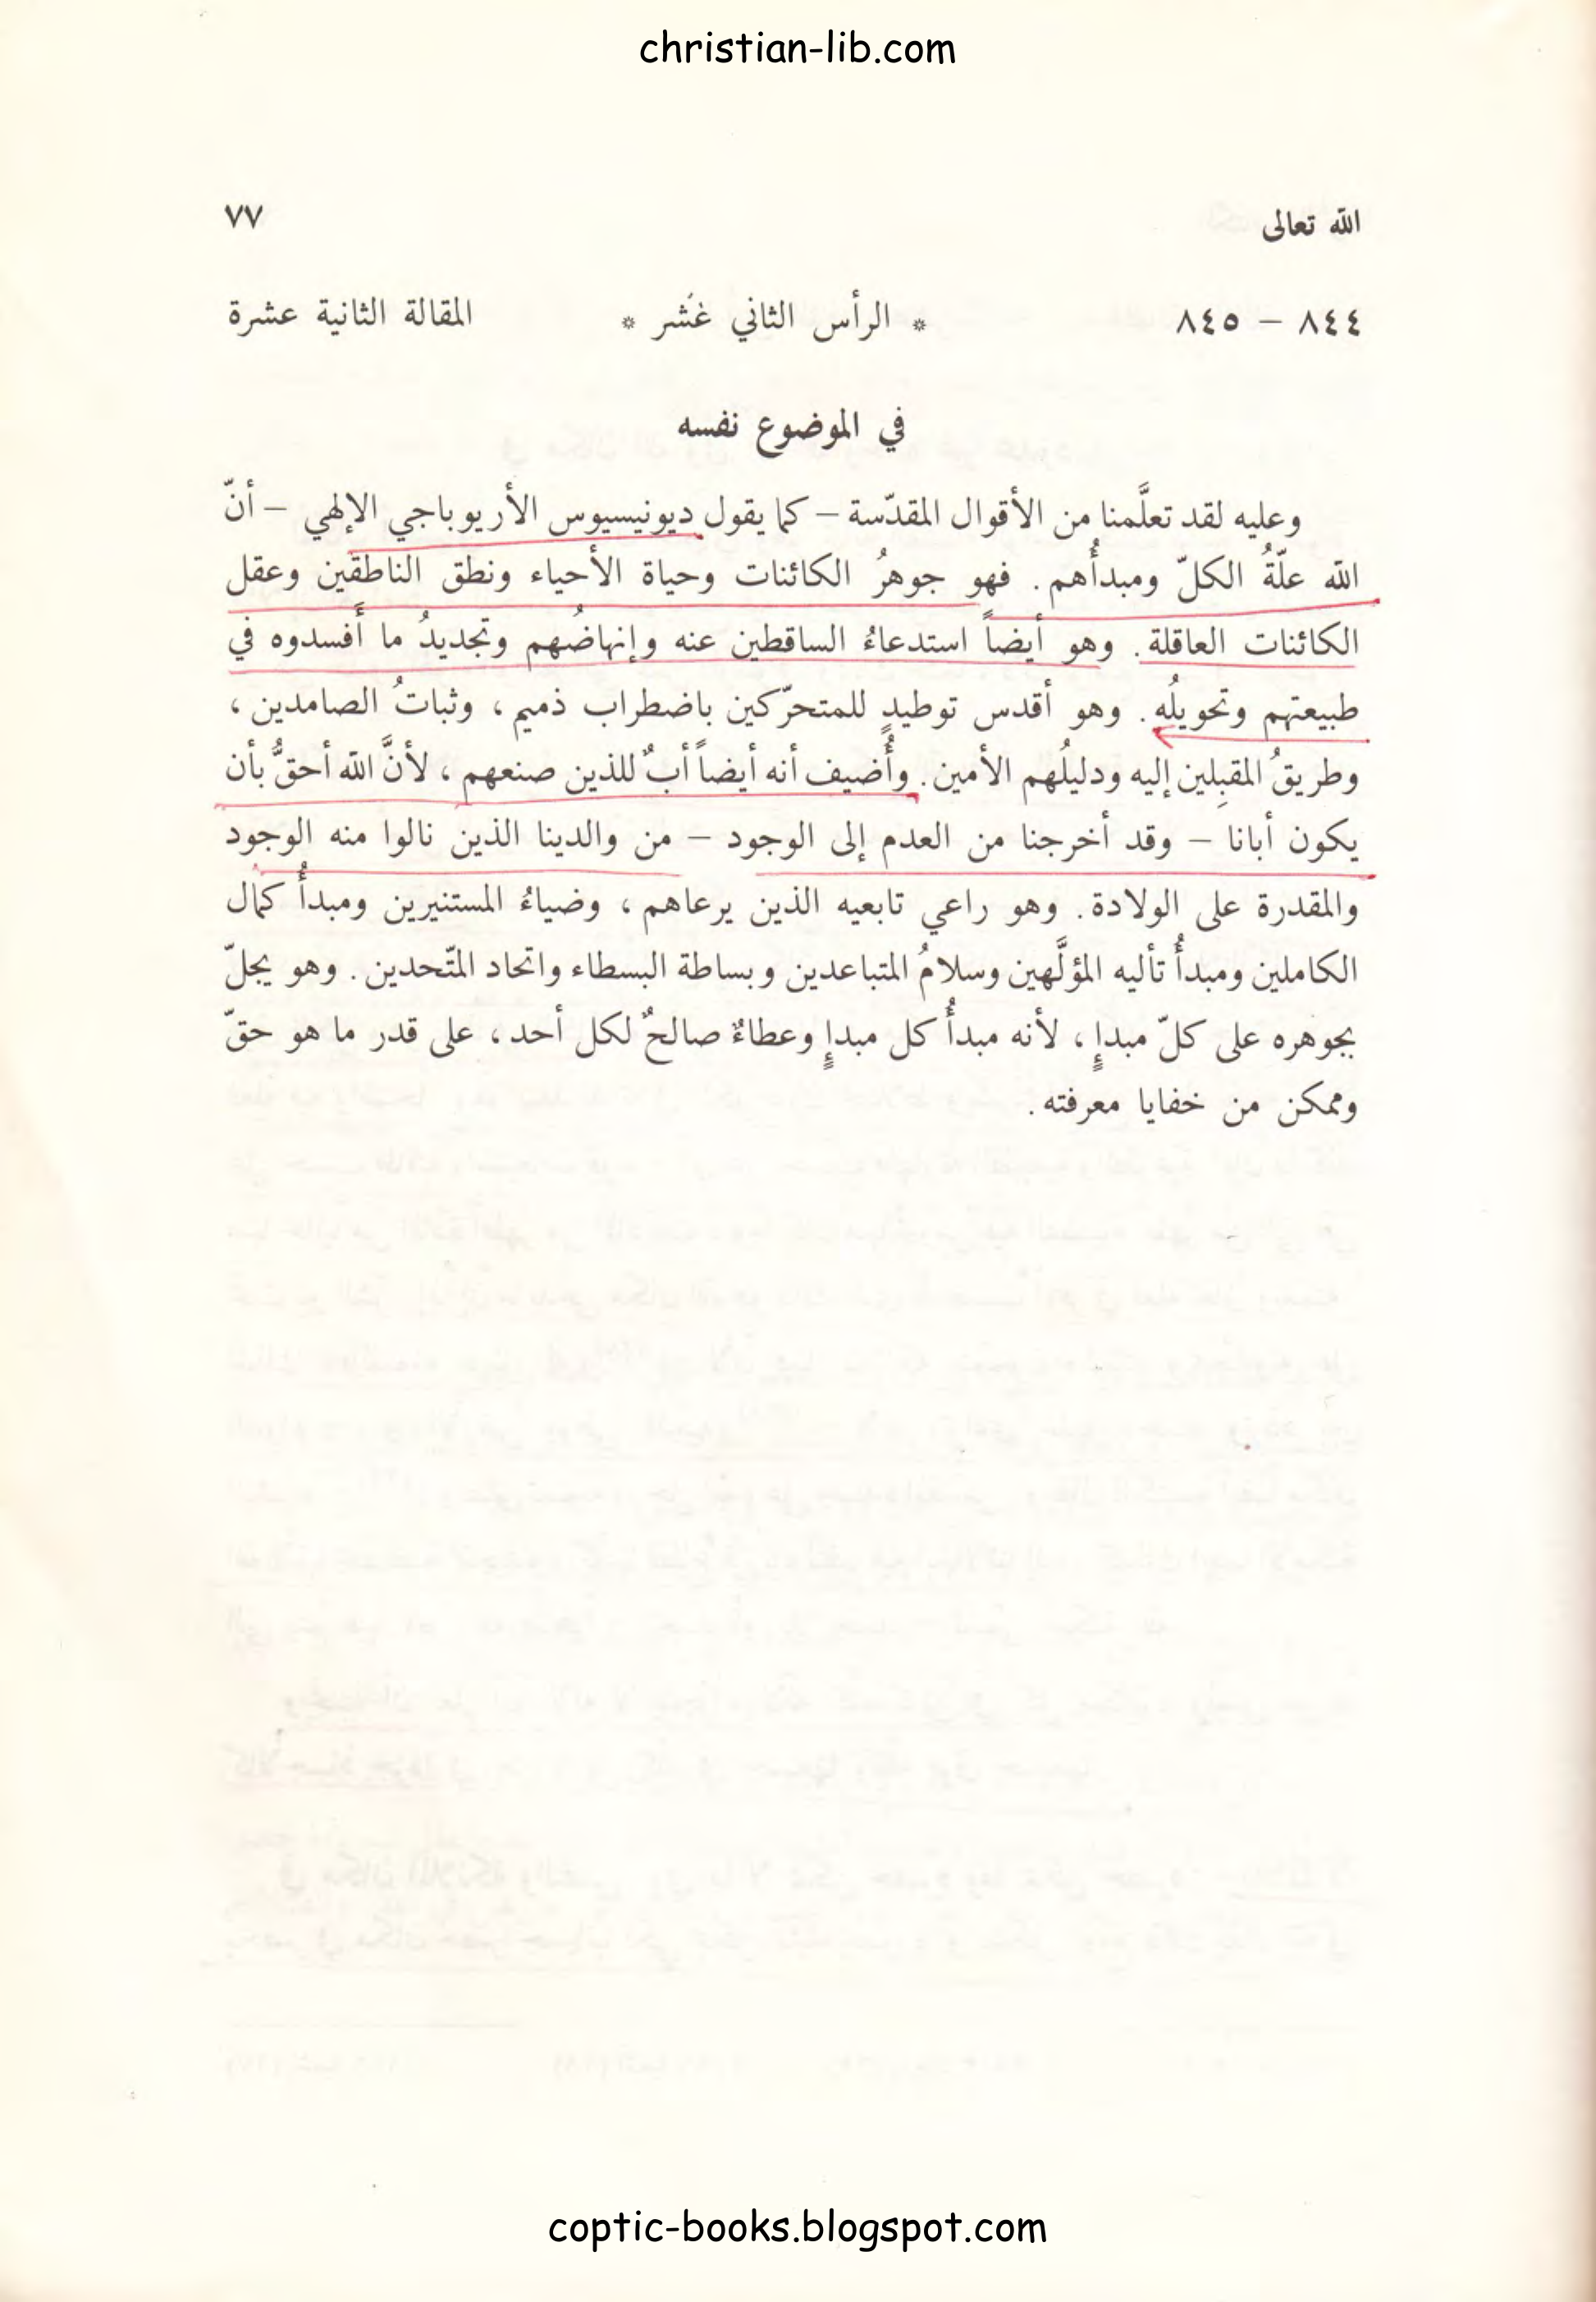 christian-lib.com
الله تعالى ٧٧
٨٤٤ – ٨٤٥ * الرأس الثاني عَشر * المقالة الثانية عشرة
في الموضوع نفسه
وعليه لقد تعلَّمنا من الأقوال المقدّسة – كما يقول ديونيسيوس الأريوباجي الإلهي – أنّ
الله علّةُ الكلّ ومبدأُهم. فهو جوهرُ الكائنات وحياة الأحياء ونطق الناطقين وعقل
الكائنات العاقلة. وهو أيضاً استدعاءُ الساقطين عنه وإنهاضُهم وتجديدُ ما أَفسدوه في
طبيعتهم وتحويلُه. وهو أقدس توطيدٍ للمتحرّكين باضطراب ذميم، وثباتُ الصامدين،
وطريقُ المقبِلين إليه ودليلُهم الأمين. وأُضيف أنه أيضاً أبٌ للذين صنعهم، لأنَّ الله أحقُّ بأن
يكون أبانا – وقد أخرجنا من العدم إلى الوجود – من والدينا الذين نالوا منه الوجود
والمقدرة على الولادة. وهو راعي تابعيه الذين يرعاهم، وضياءُ المستنيرين ومبدأُ كمال
الكاملين ومبدأُ تأليه المؤلَّهين وسلامُ المتباعدين وبساطة البسطاء واتحاد المتّحدين. وهو يجلّ
بجوهره على كلّ مبدإٍ، لأنه مبدأُ كل مبدإٍ وعطاءٌ صالحٌ لكل أحد، على قدر ما هو حقّ
وممكن من خفايا معرفته.
coptic-books.blogspot.com